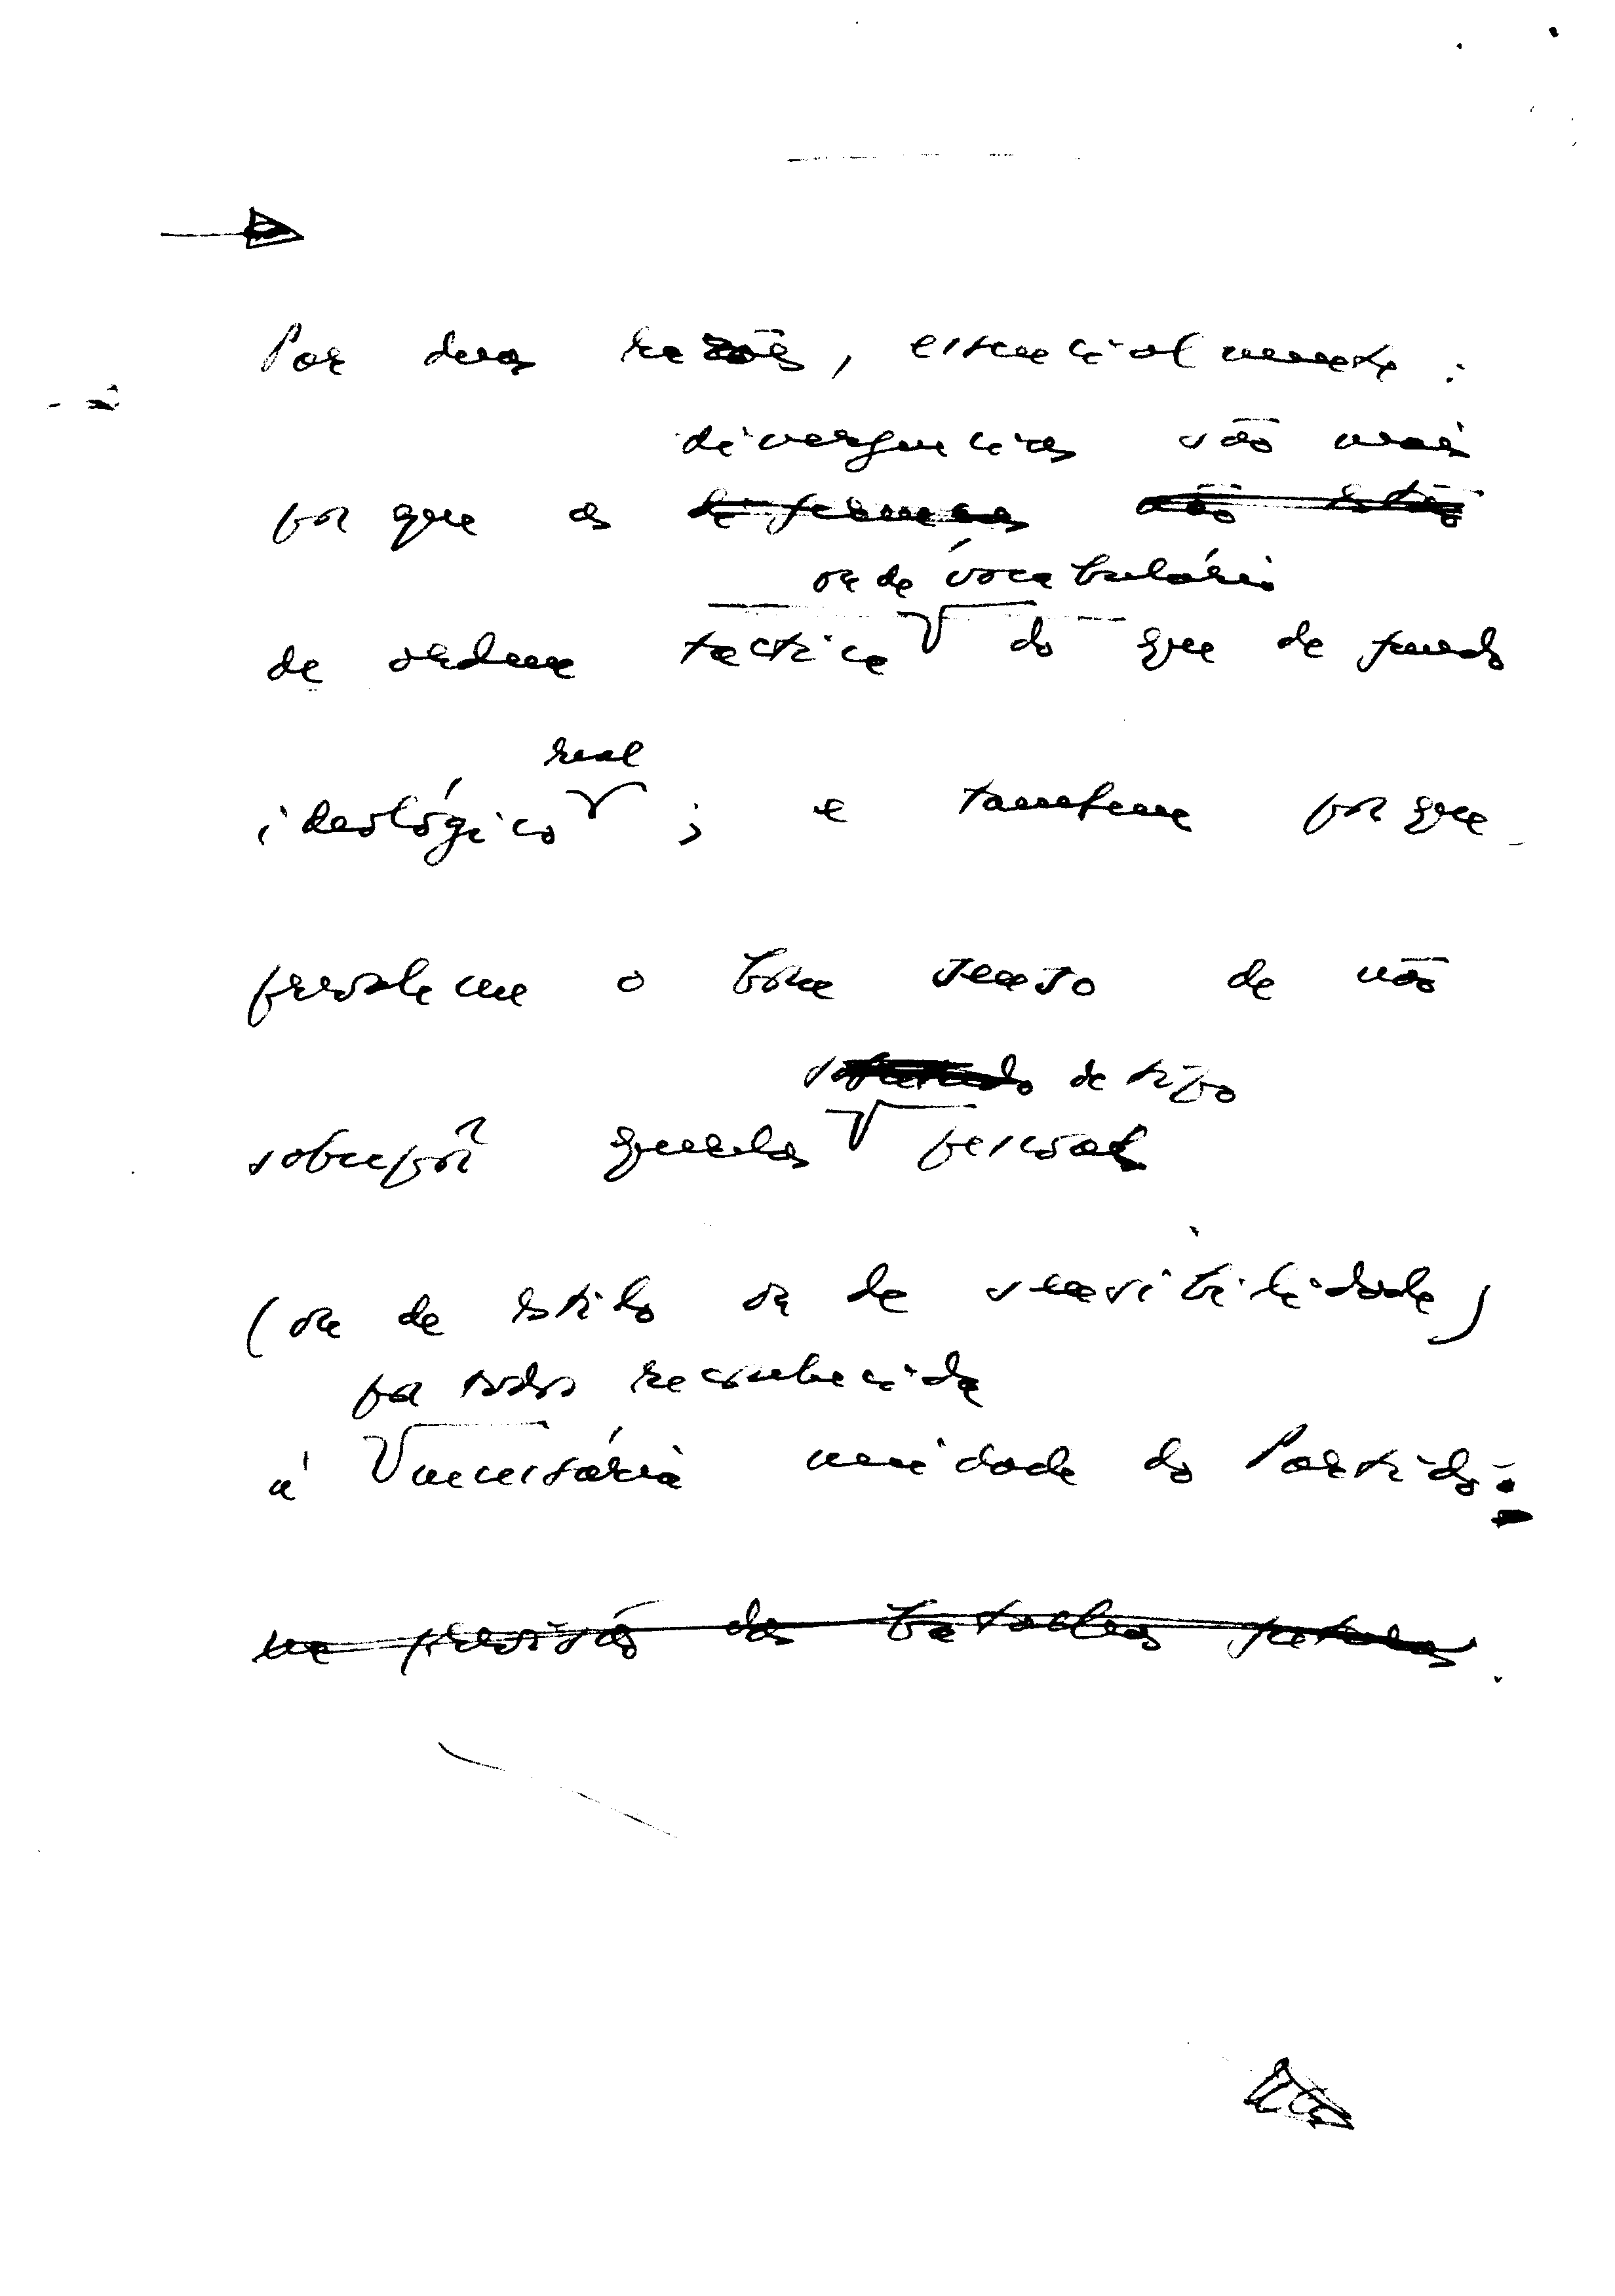 Por duas razões, essencialmente:
divergências são mais
porque as diferenças não estão
ou de vocabulário
de ordem táctica do que de fundo
real
ideológico ; e também porque
prevalece o bom senso de não
sobretudo de tipo
sobrepôr querelas pessoal
(ou de estilo ou de sensibilidade)
por todos reconhecida
à necessária unidade do Partido.
na previsão das batalhas futuras.